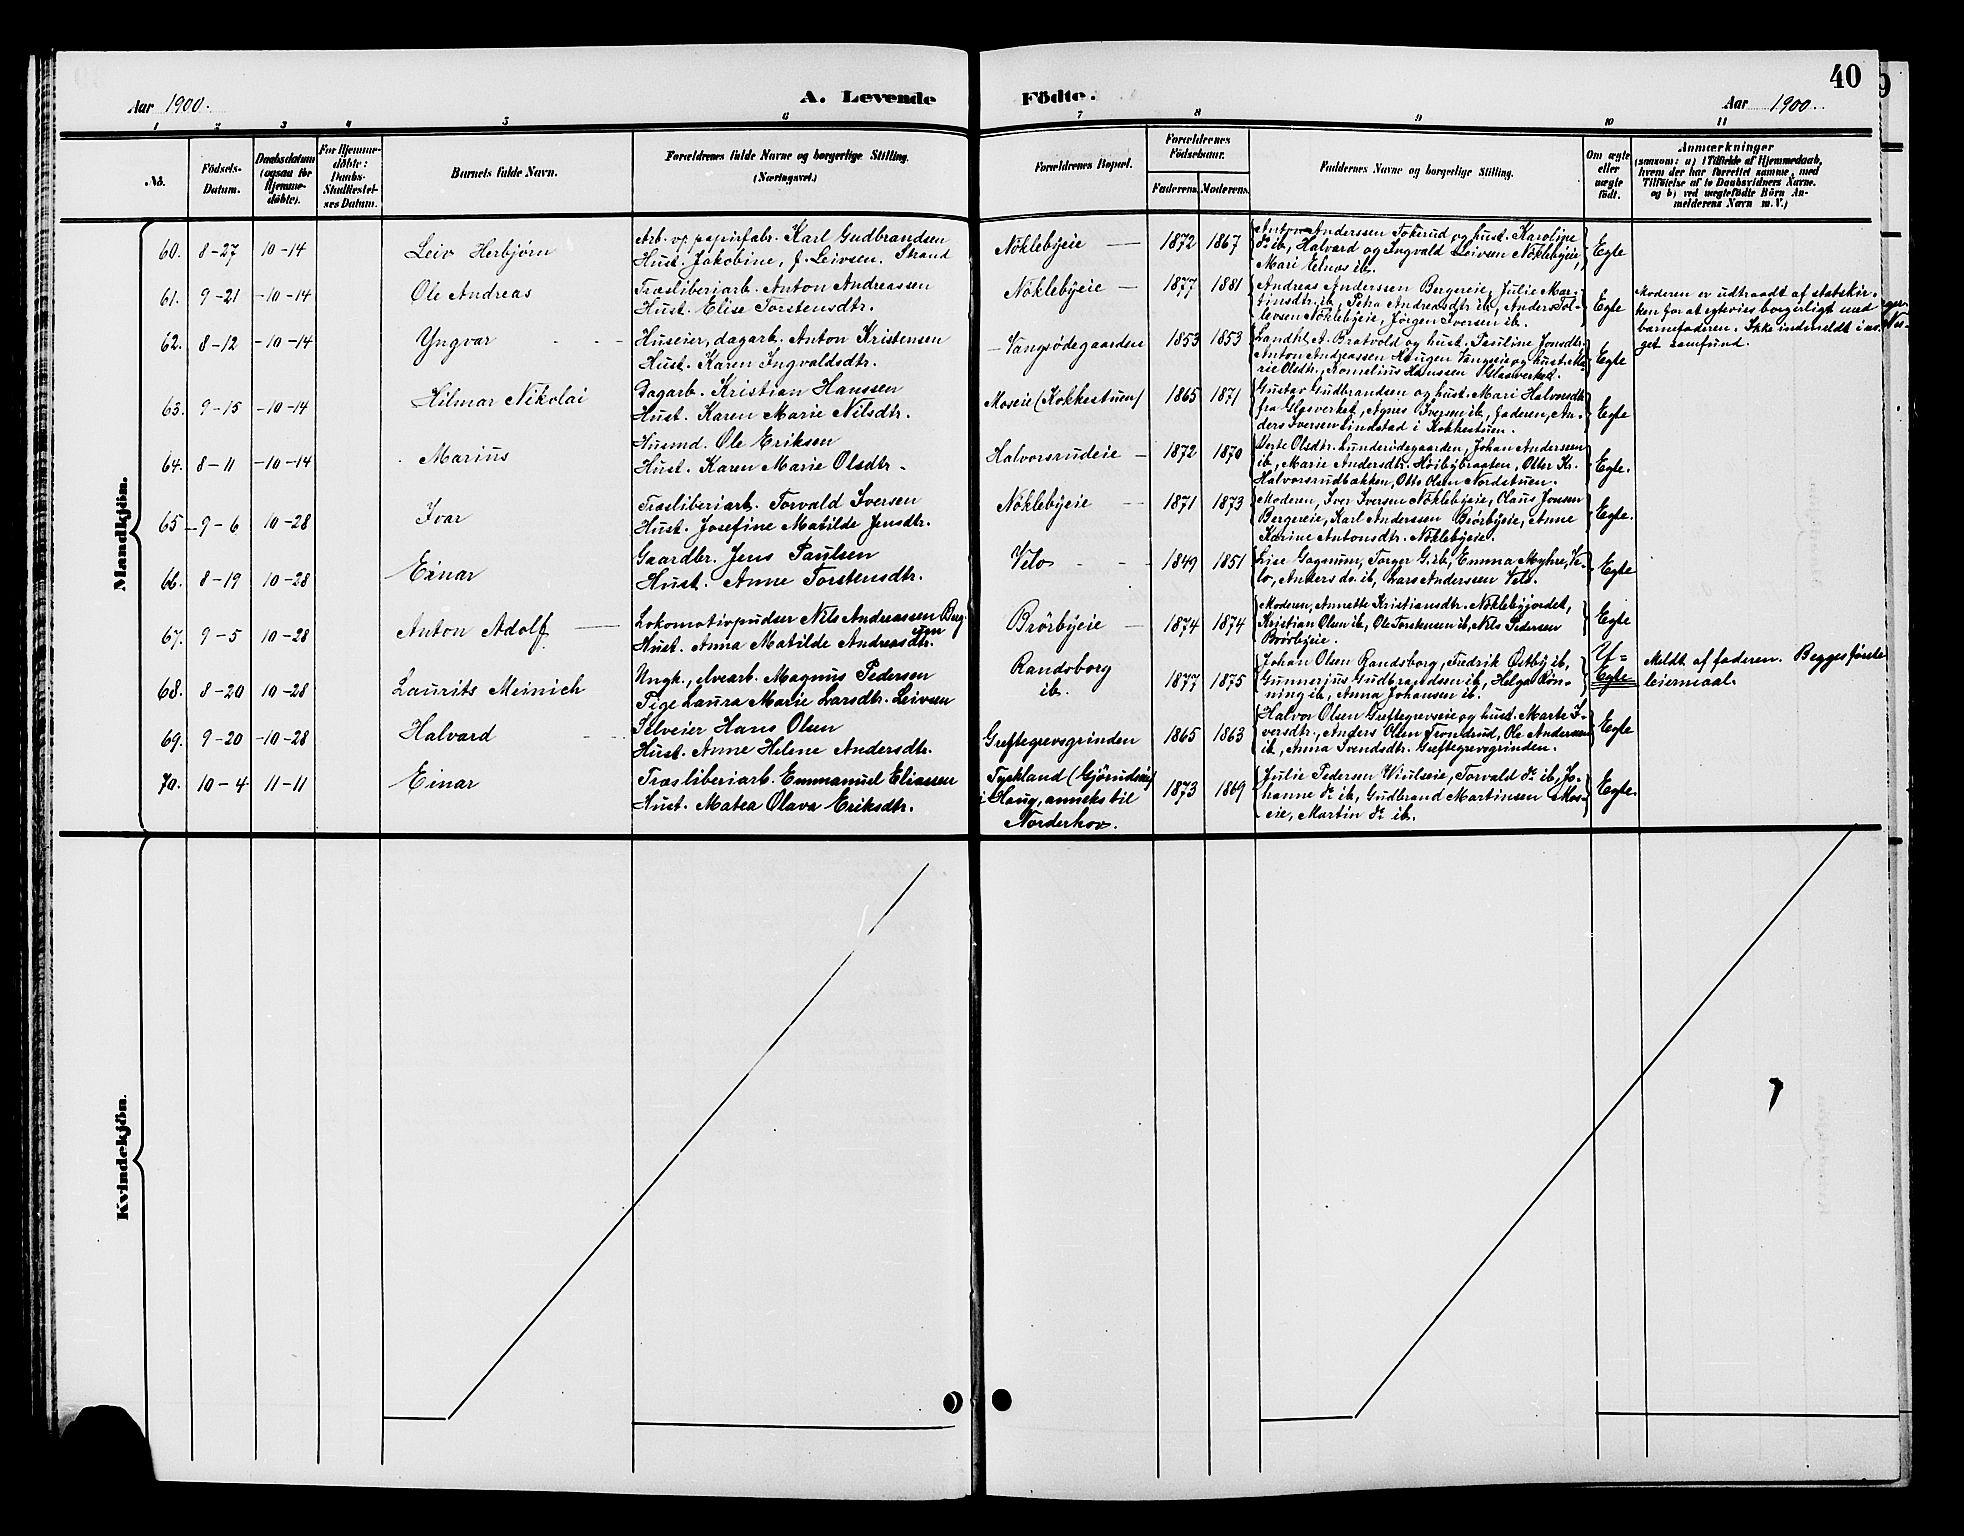 Aar 1900.
A. Levende Födte.
40
Aar 1900.
1 2 3 4 5 6 7 8 9 10 11
No.
Födsels-Datum.
Daabsdatum (ogsaa for Hjemme-döbte).
For Hjemme-döbte: Daabs-Stadfæstel-ses Datum.
Barnets fulde Navn.
Forældrenes fulde Navne og borgerlige Stilling. (Næringsvei.)
Forældrenes Bopæl.
Forældrenes Födselsaar.
Faderens. Moderens.
Faddernes Navne og borgerlige Stilling.
Om ægte eller uægte født.
Anmærkninger
(saasom: a) i Tilfælde af Hjemmedaab,
hvem der har forrettet samme, med
Tilföielse af to Daabsvidners Navne.
og b) ved uægtefödte Börn An-
melderens Navn m. V.)
Mandkjön.
60. 8-27 10-14 Leiv Herbjørn
Arb. vp papirfabr. Karl Gudbrandsen
Hust. Jakobine, f. Leivsen. Strand
Nöklebyeie 1872 1867
Anton Anderssen Tokerud og hust. Karoline
do ib, Halvard og Ingvald Leivsen Nöklebyeie,
Mari Elnes ib.
Egte
61. 9-21 10-14 Ole Andreas
Træsliberiarb. Anton Andreassen
Hust. Elise Torstensdtr.
Nöklebyeie 1877 1881
Andreas Anderssen Bergereie, Julie Mar-
tinsdtr. ib, Petra Andreasdtr ib, Anders Tol-
levsen Nöklebyeie, Jörgen Iversen ib.
Egte
Moderen er udtraadt af statskir-
ken for at egtevies borgerligt med
barnefaderen. Ikke indmeldt i no-
get samfund.
62. 8-12 10-14 Yngvar
Huseier, dagarb. Anton Kristensen
Hust. Karen Ingvaldsdtr.
Vangsödegaarden 1853 1853
Landh. A. Bratvold og hust. Pauline Jonsdtr.
Anton Andreassen Haugen Vangseie og hust. Ma-
rie Olsdtr., Kornelius Hanssen Glasverket.
Egte
63. 9-15 10-14 Hilmar Nikolai
Dagarb. Kristian Hanssen
Hust. Karen Marie Nilsdtr.
Moseie (Kokkestuen) 1865 1871
Gustav Gudbrandsen og hust. Mari Halvorsdtr.
fra Glasverket, Agnes Iversen ib, Faderen, An-
ders Iversen Lindstad i Kokkestuen.
Egte
64. 8-11 10-14 Marius
Husmd. Ole Eriksen
Hust. Karen Marie Olsdtr.
Halvorsrudeie 1872 1870
Berte Olsdtr. Lunderödegaarden, Johan Anderssen
ib, Marie Andersdtr. Høibybraaten, Otter Kr.
Halvorsrudbakken, Otto Olsen Nordstuen.
Egte.
65 9-6 10-28 Ivar
Træsliberiarb. Torvald Iversen
Hust. Josefine Matilde Jensdtr.
Nöklebyeie 1871 1873
Moderen, Iver Iversen Nöklebyeie, Olaus Jonsen
Bergereie, Karl Anderssen Brörbyeie, Anne
Karine Antonsdtr. Nöklebyeie.
Egte.
66. 8-19 10-28 Einar
Gaardbr. Jens Paulsen
Hust. Anne Torstensdtr.
Velo 1849 1851
Lise Gagnum, Torger G. ib, Emma Myhre, Ve-
lo, Anders do. ib, Lars Anderssen Velo.
Egte
67. 9-5 10-28 Anton Adolf
Lokomotivpudser Nils Andreassen Berg
Hust. Anna Matilde Andreasdtr.
Brörbyeie 1874 1874
Moderen, Annette Kristiansdtr. Nöklebyjordet,
Kristian Olsen ib, Ole Torstensen ib, Nils Pedersen
Brörbyeie.
Egte
68. 8-20 10-28 Laurits Meinich
Ungk., elvearb. Magnus Pedersen
Pige Laura Marie Larsdtr. Leivsen
Randsborg
ib. 1877 1875
Johan Olsen Randsborg, Fredrik Østby ib,
Gunnerius Gudbrandsen ib, Helga Røn-
ning ib, Anna Johansen ib.
U=
Egte
Meldt af faderen. Begges første
leiermaal.
69. 9-20 10-28 Halvard
Selveier Hans Olsen
Hust. Anne Helene Andersdtr.
Greftegrevsgrinden 1865 1863
Halvor Olsen Greftegrevseie og hust. Marte I-
versdtr., Anders Olsen Trondrud, Ole Andersen
ib, Anna Svendsdtr. Greftegrevsgrinden.
Egte
70. 10-4 11-11 Einar
Træsliberiarb. Emmanuel Eliassen
Hust. Matea Olava Eriksdtr.
Tyskland (Gjörudseie)
i Haug, anneks til
Norderhov. 1873 1869
Julie Pedersen Viulseie, Torvald do ib, Jo-
hanne do ib, Gudbrand Martinsen Mos-
eie, Martin do ib.
Egte.
Kvindekjön.